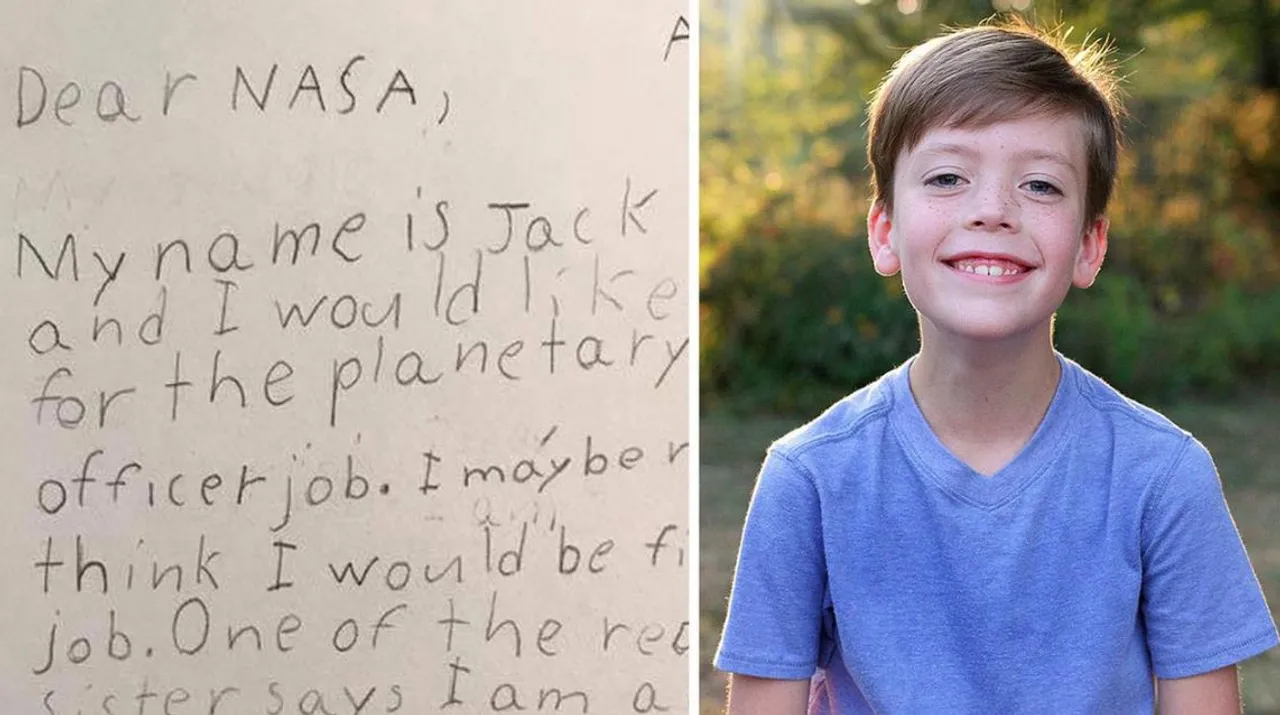 Dear NASA,
My name is Jack
and I would like
for the planetary
officer job. I maybe
think I would be fi
job. One of the re
sister says I am a